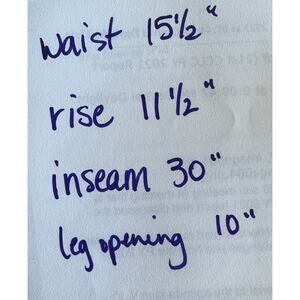 waist 15½"
rise 11½"
inseam 30"
leg opening 10"